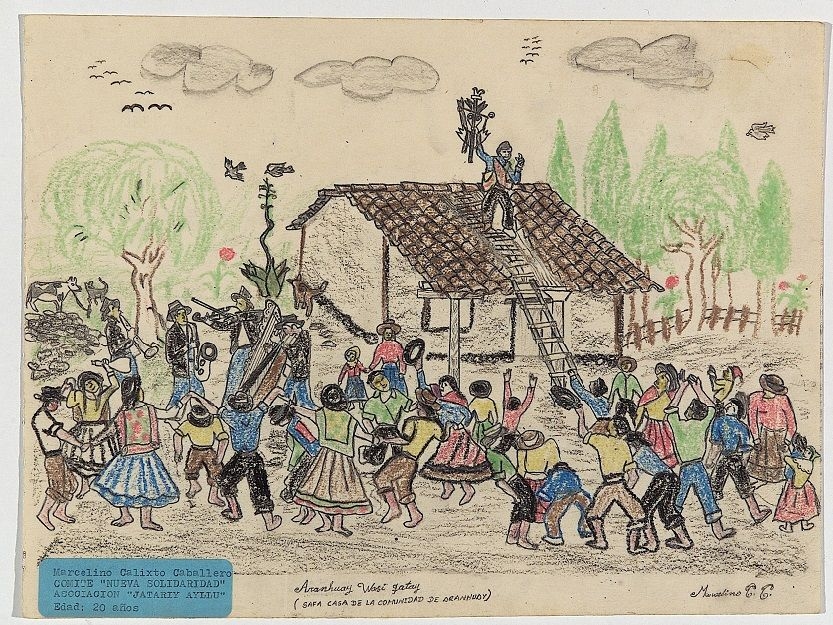 Marcelino Calixto Caballero
COMITE "NUEVA SOLIDARIDAD"
ASOCIACION "JATARIY AYLLU"
Edad: 20 años
Aranhuay Wasi gatay
(SAFA CASA DE LA COMUNIDAD DE ARANHUAY)
Marcelino C. C.